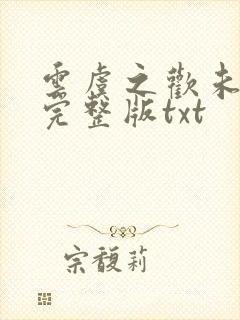 雲虞之歡未
完整版txt
宗馥莉